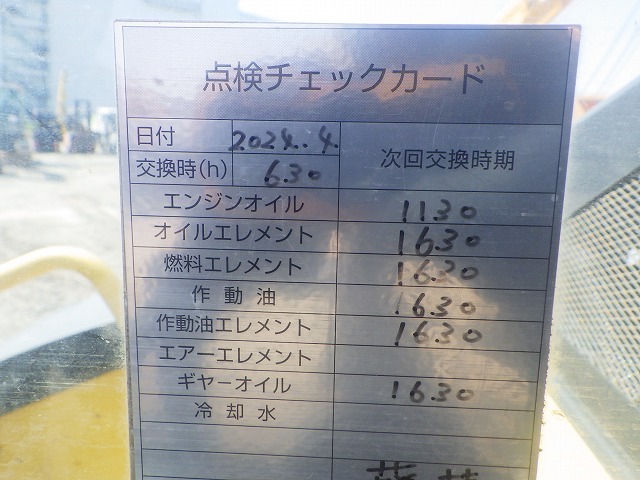 点検チェックカード
日付 2024.4.
交換時(h) 630 次回交換時期
エンジンオイル 1130
オイルエレメント 1630
燃料エレメント 1630
作動油 1630
作動油エレメント 1630
エアーエレメント
ギヤーオイル 1630
冷却水